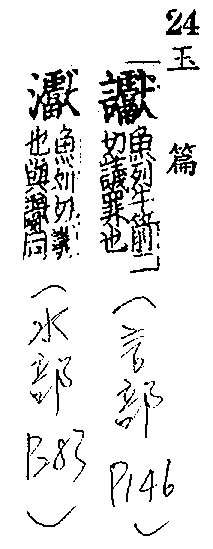 24
玉篇
讞 魚列牛箭二
切議罪也
(言部
P146)
灉 魚列切議
也與讞同
(水部
P.83)